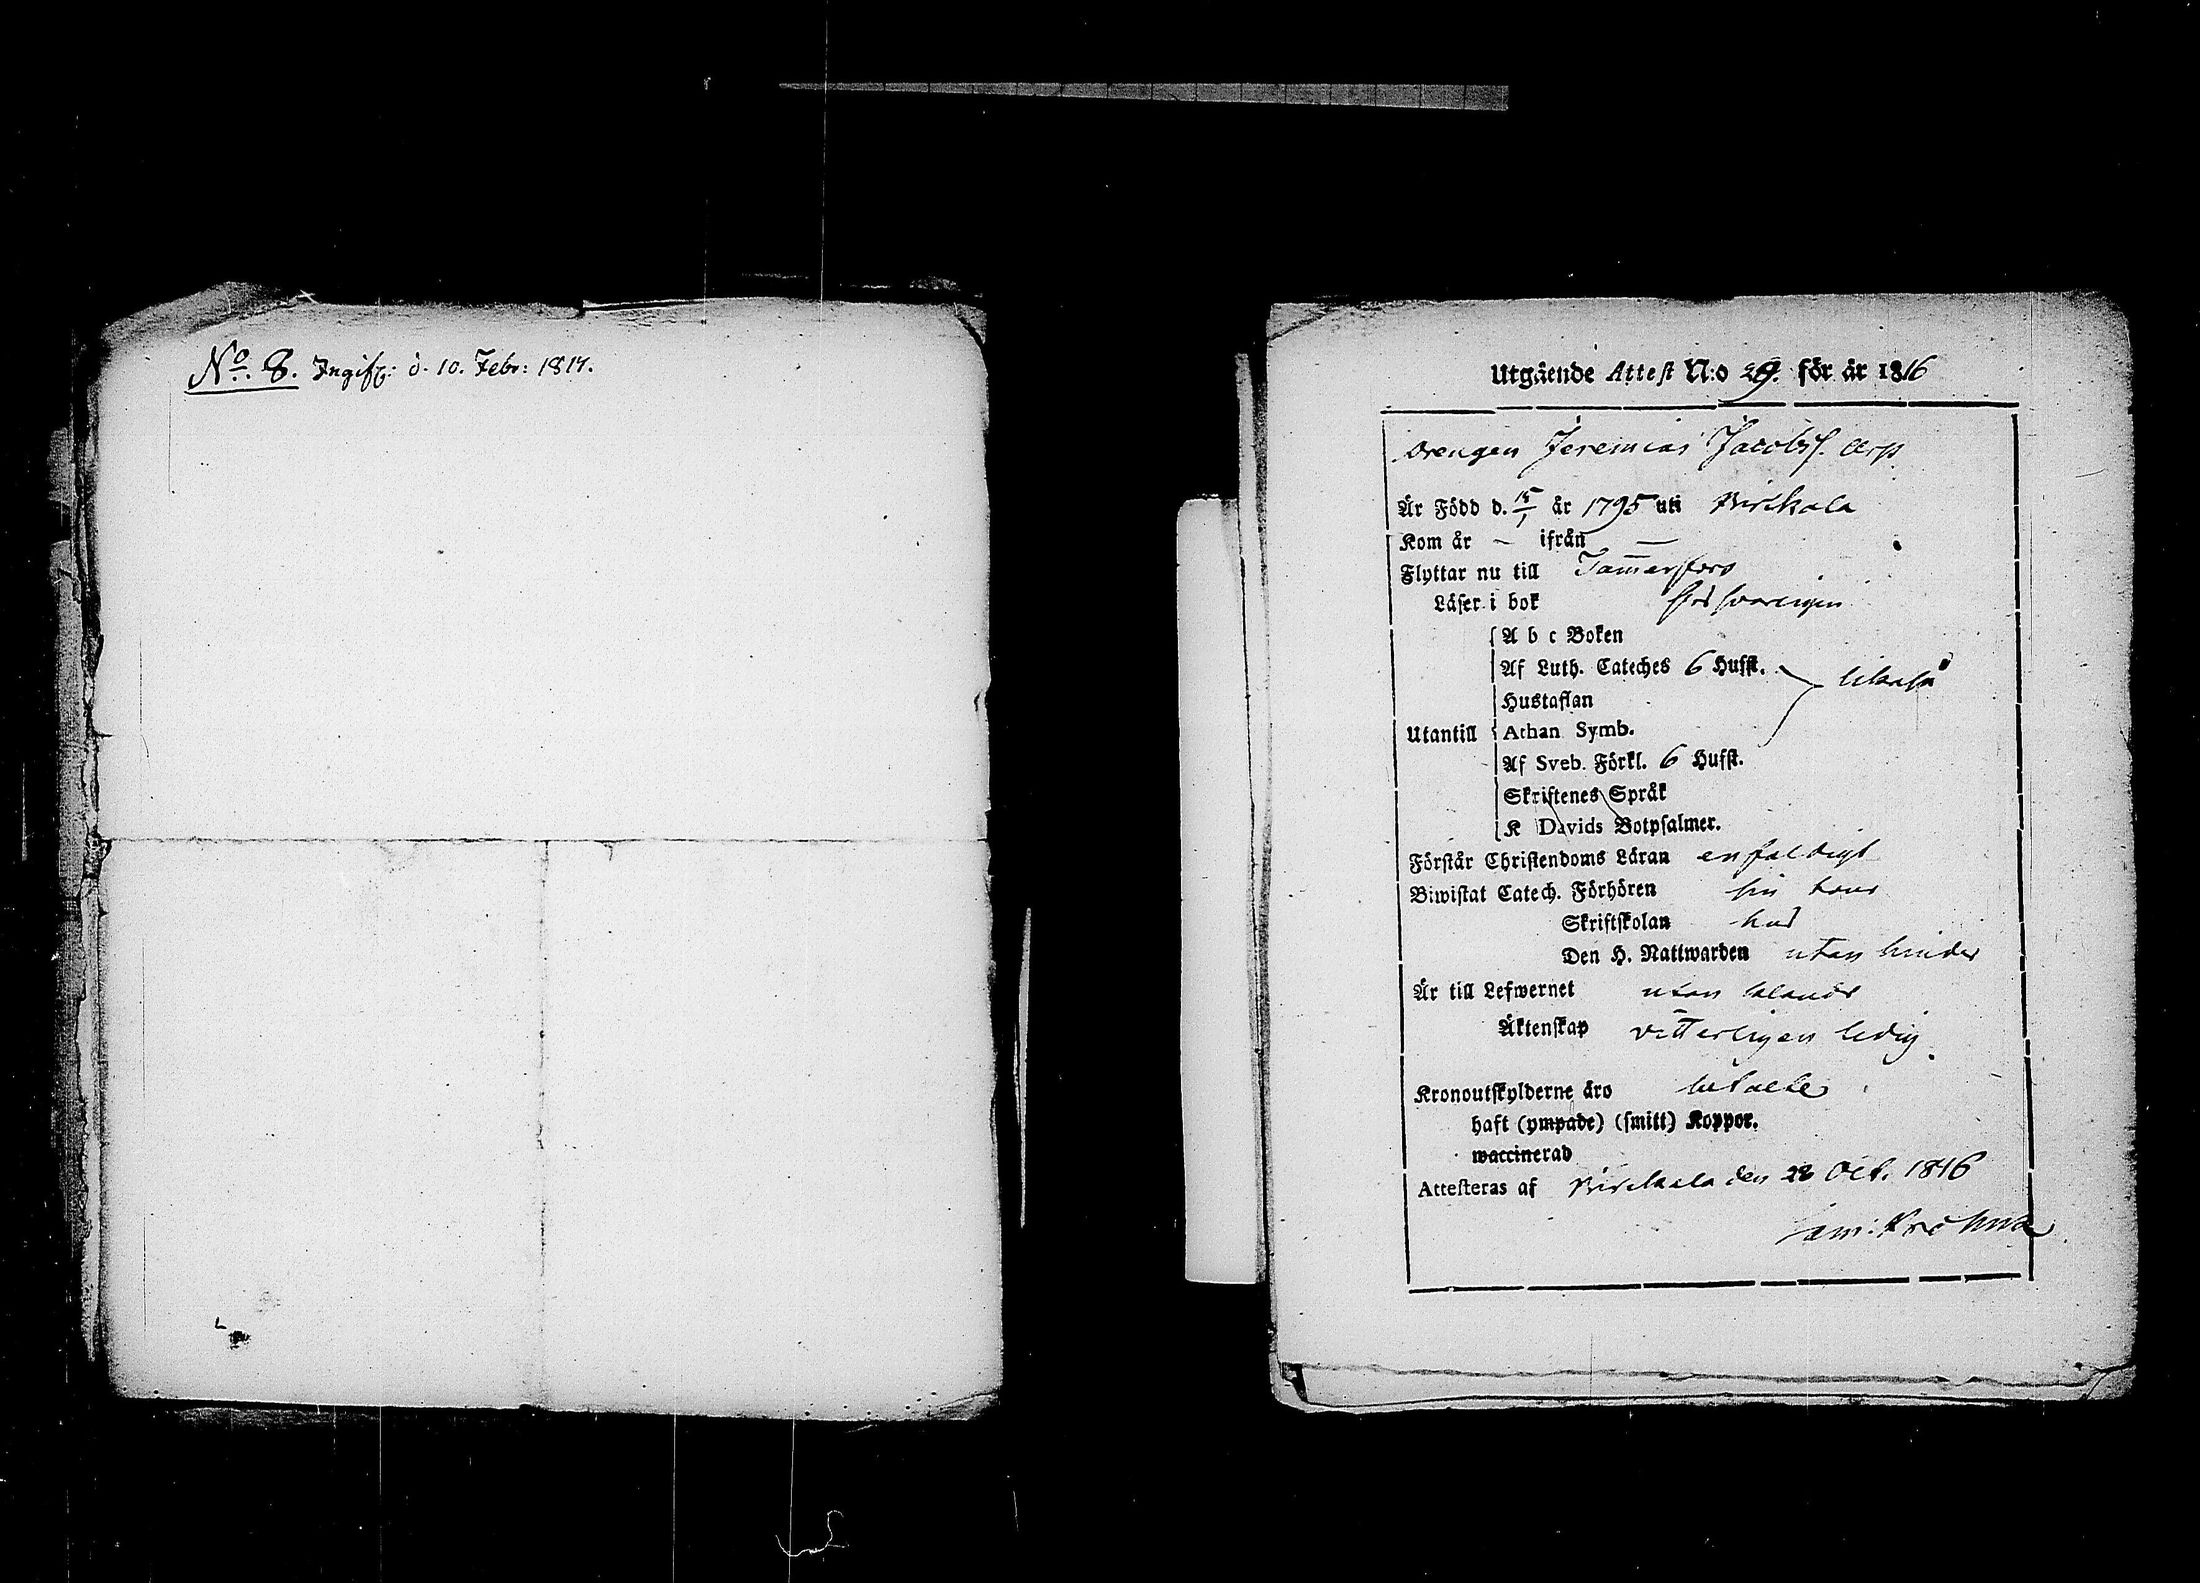 No. 8. Ingifv: d. 10. Febr: 1817.
Utgående Attest N:o 29. för år 1816
Drengen Jeremias Jacobss.
Är Född d. 15/1 år 1795 uti Birckala
Kom år — ifrån —
Flyttar nu till Tammerfors
Läser i bok försvarligen
A b c Boken
Af Luth. Cateches 6 Hufst. likaså
Hustaflan
Utantill Athan Symb.
Af Sveb. Förkl. 6 Hufst.
Skriftenes Språk
K Davids Botpsalmer.
Förstår Christendoms Läran enfaldigt
Biwistat Catech. Förhören
Skriftskolan
Den H. Nattwarden utan hinder
Är till Lefwernet utan
Äktenskap vitterligen ledig.
Kronoutskylderne äro betalte
haft (ympade) (smitt) Koppor.
waccinerad
Attesteras af Birckala den 28 Oct. 1816